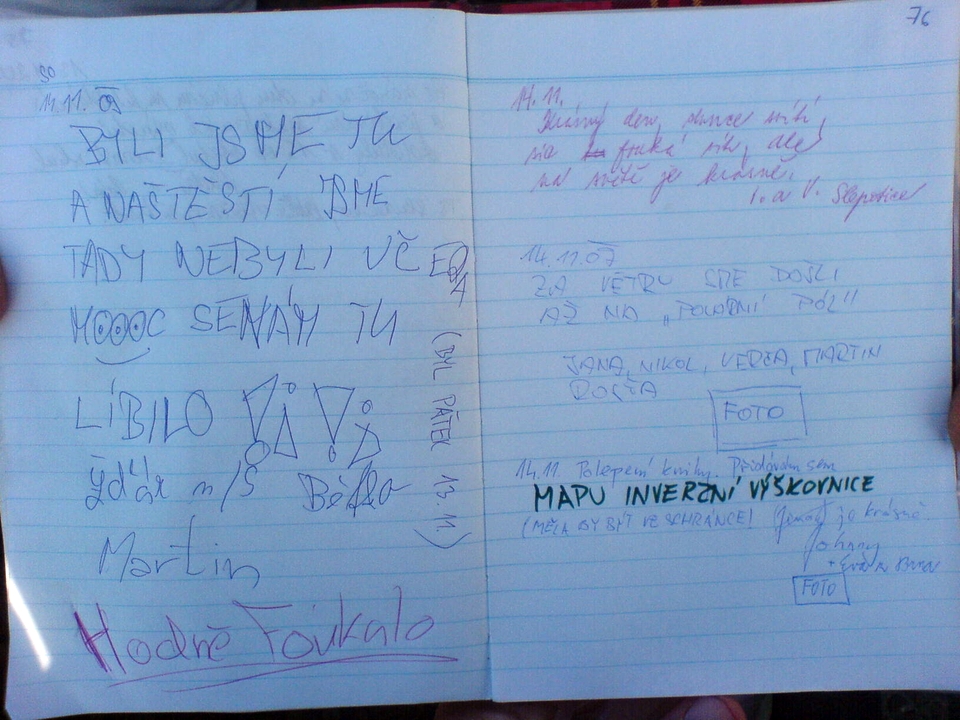 76
SO
14.11. 09
BYLI JSME TU
A NAŠTĚSTÍ JSME
TADY NEBYLI VČERA
MOOOC SE NÁM TU
(BYL PÁTEK 13.11.)
LÍBILO !!
Žďár n/S Běťka
Martin
Hodně Foukalo
14.11.
Krásný den, slunce svítí,
sic fouká vítr, ale
na světě je krásně.
I. a V. Slepotice
14.11.09
ZA VĚTRU SME DOŠLI
AŽ NA „POLÁRNÍ PÓL"
JANA, NIKOL, VERČA, MARTIN
FOTO
14.11. Polepení knihy. Přidávám sem
MAPU INVERZNÍ VÝŠKOVNICE
(MĚLA BY BÝT VE SCHRÁNCE) Jinak je krásně.
Johnny
FOTO